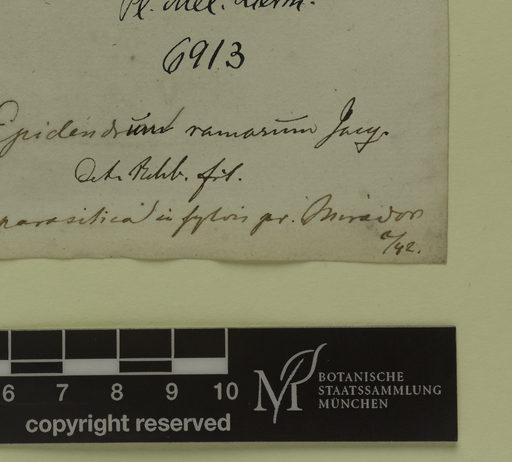 Pl. Mex. Lieb.
6913
Epidendrum ramosum Jacq.
Det. Rchb. fil.
parasitica in sylvis pr. Mirador
/42.
6 7 8 9 10
copyright reserved
BOTANISCHE
STAATSSAMMLUNG
MÜNCHEN